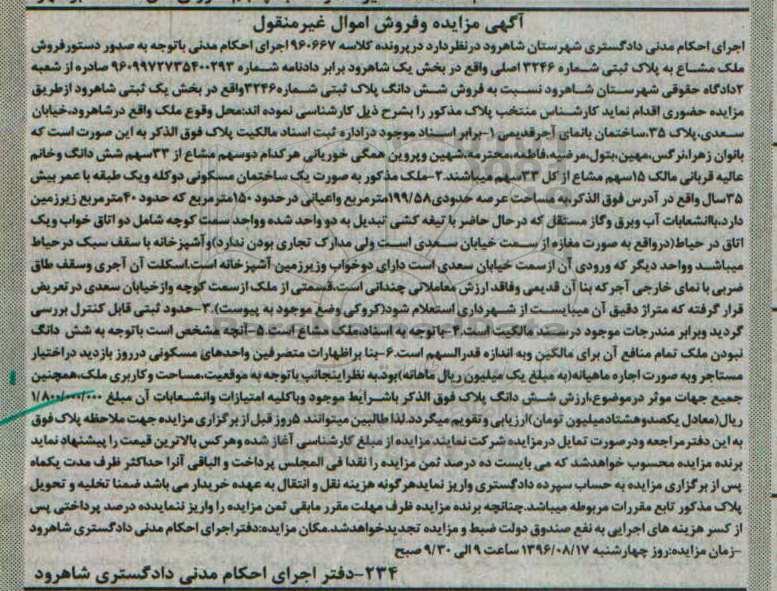 آگهی مزایده وفروش اموال غیرمنقول
اجرای احکام مدنی دادگستری شهرستان شاهرود درنظردارد درپرونده کلاسه ۹۶۰۶۶۷ اجرای احکام مدنی باتوجه به صدور دستورفروش
ملک مشاع به پلاک ثبتی شماره ۳۲۴۶ اصلی واقع در بخش یک شاهرود برابر دادنامه شماره ۹۶۰۹۹۷۲۷۳۵۴۰۰۲۹۳ صادره از شعبه
۲دادگاه حقوقی شهرستان شاهرود نسبت به فروش شش دانگ پلاک ثبتی شماره۳۲۴۶واقع در بخش یک ثبتی شاهرود ازطریق
مزایده حضوری اقدام نماید کارشناس منتخب پلاک مذکور را بشرح ذیل کارشناسی نموده اند:محل وقوع ملک واقع درشاهرود،خیابان
سعدی،پلاک ۳۵،ساختمان بانمای آجرقدیمی ۱-برابر اسناد موجود دراداره ثبت اسناد مالکیت پلاک فوق الذکر به این صورت است که
بانوان زهرا،نرگس،مهین،بتول،مرضیه،فاطمه،محترمه،شهین وپروین همگی خوریانی هرکدام دوسهم مشاع از ۳۳سهم شش دانگ وخانم
عالیه قربانی مالک ۱۵سهم مشاع از کل ۳۳سهم میباشند.۲-ملک مذکور به صورت یک ساختمان مسکونی دوکله ویک طبقه با عمر بیش
۳۵سال واقع در آدرس فوق الذکر،به مساحت عرصه حدودی۱۹۹/۵۸مترمربع واعیانی درحدود ۱۵۰مترمربع که حدود ۴۰مترمربع زیرزمین
دارد،باانشعابات آب وبرق وگاز مستقل که درحال حاضر با تیغه کشی تبدیل به دو واحد شده وواحد سمت کوچه شامل دو اتاق خواب ویک
اتاق در حیاط(درواقع به صورت مغازه از سمت خیابان سعدی است ولی مدارک تجاری بودن ندارد)وآشپزخانه با سقف سبک درحیاط
میباشد وواحد دیگر که ورودی آن ازسمت خیابان سعدی است دارای دوخواب وزیرزمین آشپزخانه است.اسکلت آن آجری وسقف طاق
ضربی با نمای خارجی آجرکه بنا آن قدیمی وفاقد ارزش معاملاتی چندانی است،قسمتی از ملک ازسمت کوچه وازخیابان سعدی درتعریض
قرار گرفته که متراژ دقیق آن میبایست از شهرداری استعلام شود(کروکی وضع موجود به پیوست).۳-حدود ثبتی قابل کنترل بررسی
گردید وبرابر مندرجات موجود درسند مالکیت است.۴-باتوجه به اسنادملک مشاع است.۵-آنچه مشخص است باتوجه به شش دانگ
نبودن ملک تمام منافع آن برای مالکین وبه اندازه قدرالسهم است.۶-بنا براظهارات متصرفین واحدهای مسکونی درروز بازدید دراختیار
مستاجر وبه صورت اجاره ماهیانه(به مبلغ یک میلیون ریال ماهانه)بود.به نظراینجانب باتوجه به موقعیت،مساحت وکاربری ملک،همچنین
جمیع جهات موثر درموضوع،ارزش شش دانگ پلاک فوق الذکر باشرایط موجود وباکلیه امتیازات وانشعابات آن مبلغ ۱/۸۰۰/۰۰۰/۰۰۰
ریال(معادل یکصدوهشتادمیلیون تومان)ارزیابی وتقویم میگردد.لذا طالبین میتوانند ۵روز قبل از برگزاری مزایده جهت ملاحظه پلاک فوق
به این دفترمراجعه ودرصورت تمایل درمزایده شرکت نمایند مزایده از مبلغ کارشناسی آغاز شده وهرکس بالاترین قیمت را پیشنهاد نماید
برنده مزایده محسوب خواهدشد که می بایست ده درصد ثمن مزایده را نقدا فی المجلس پرداخت و الباقی آنرا حداکثر ظرف مدت یکماه
پس از برگزاری مزایده به حساب سپرده دادگستری واریز نمایدهرگونه هزینه نقل و انتقال به عهده خریدار می باشد ضمنا تخلیه و تحویل
پلاک مذکور تابع مقررات مربوطه میباشد.چنانچه برنده مزایده ظرف مهلت مقرر مابقی ثمن مزایده را واریز ننمایدده درصد پرداختی پس
از کسر هزینه های اجرایی به نفع صندوق دولت ضبط و مزایده تجدیدخواهدشد.مکان مزایده:دفتراجرای احکام مدنی دادگستری شاهرود
-زمان مزایده:روز چهارشنبه ۱۳۹۶/۰۸/۱۷ ساعت ۹ الی ۹/۳۰ صبح
۲۳۴-دفتر اجرای احکام مدنی دادگستری شاهرود